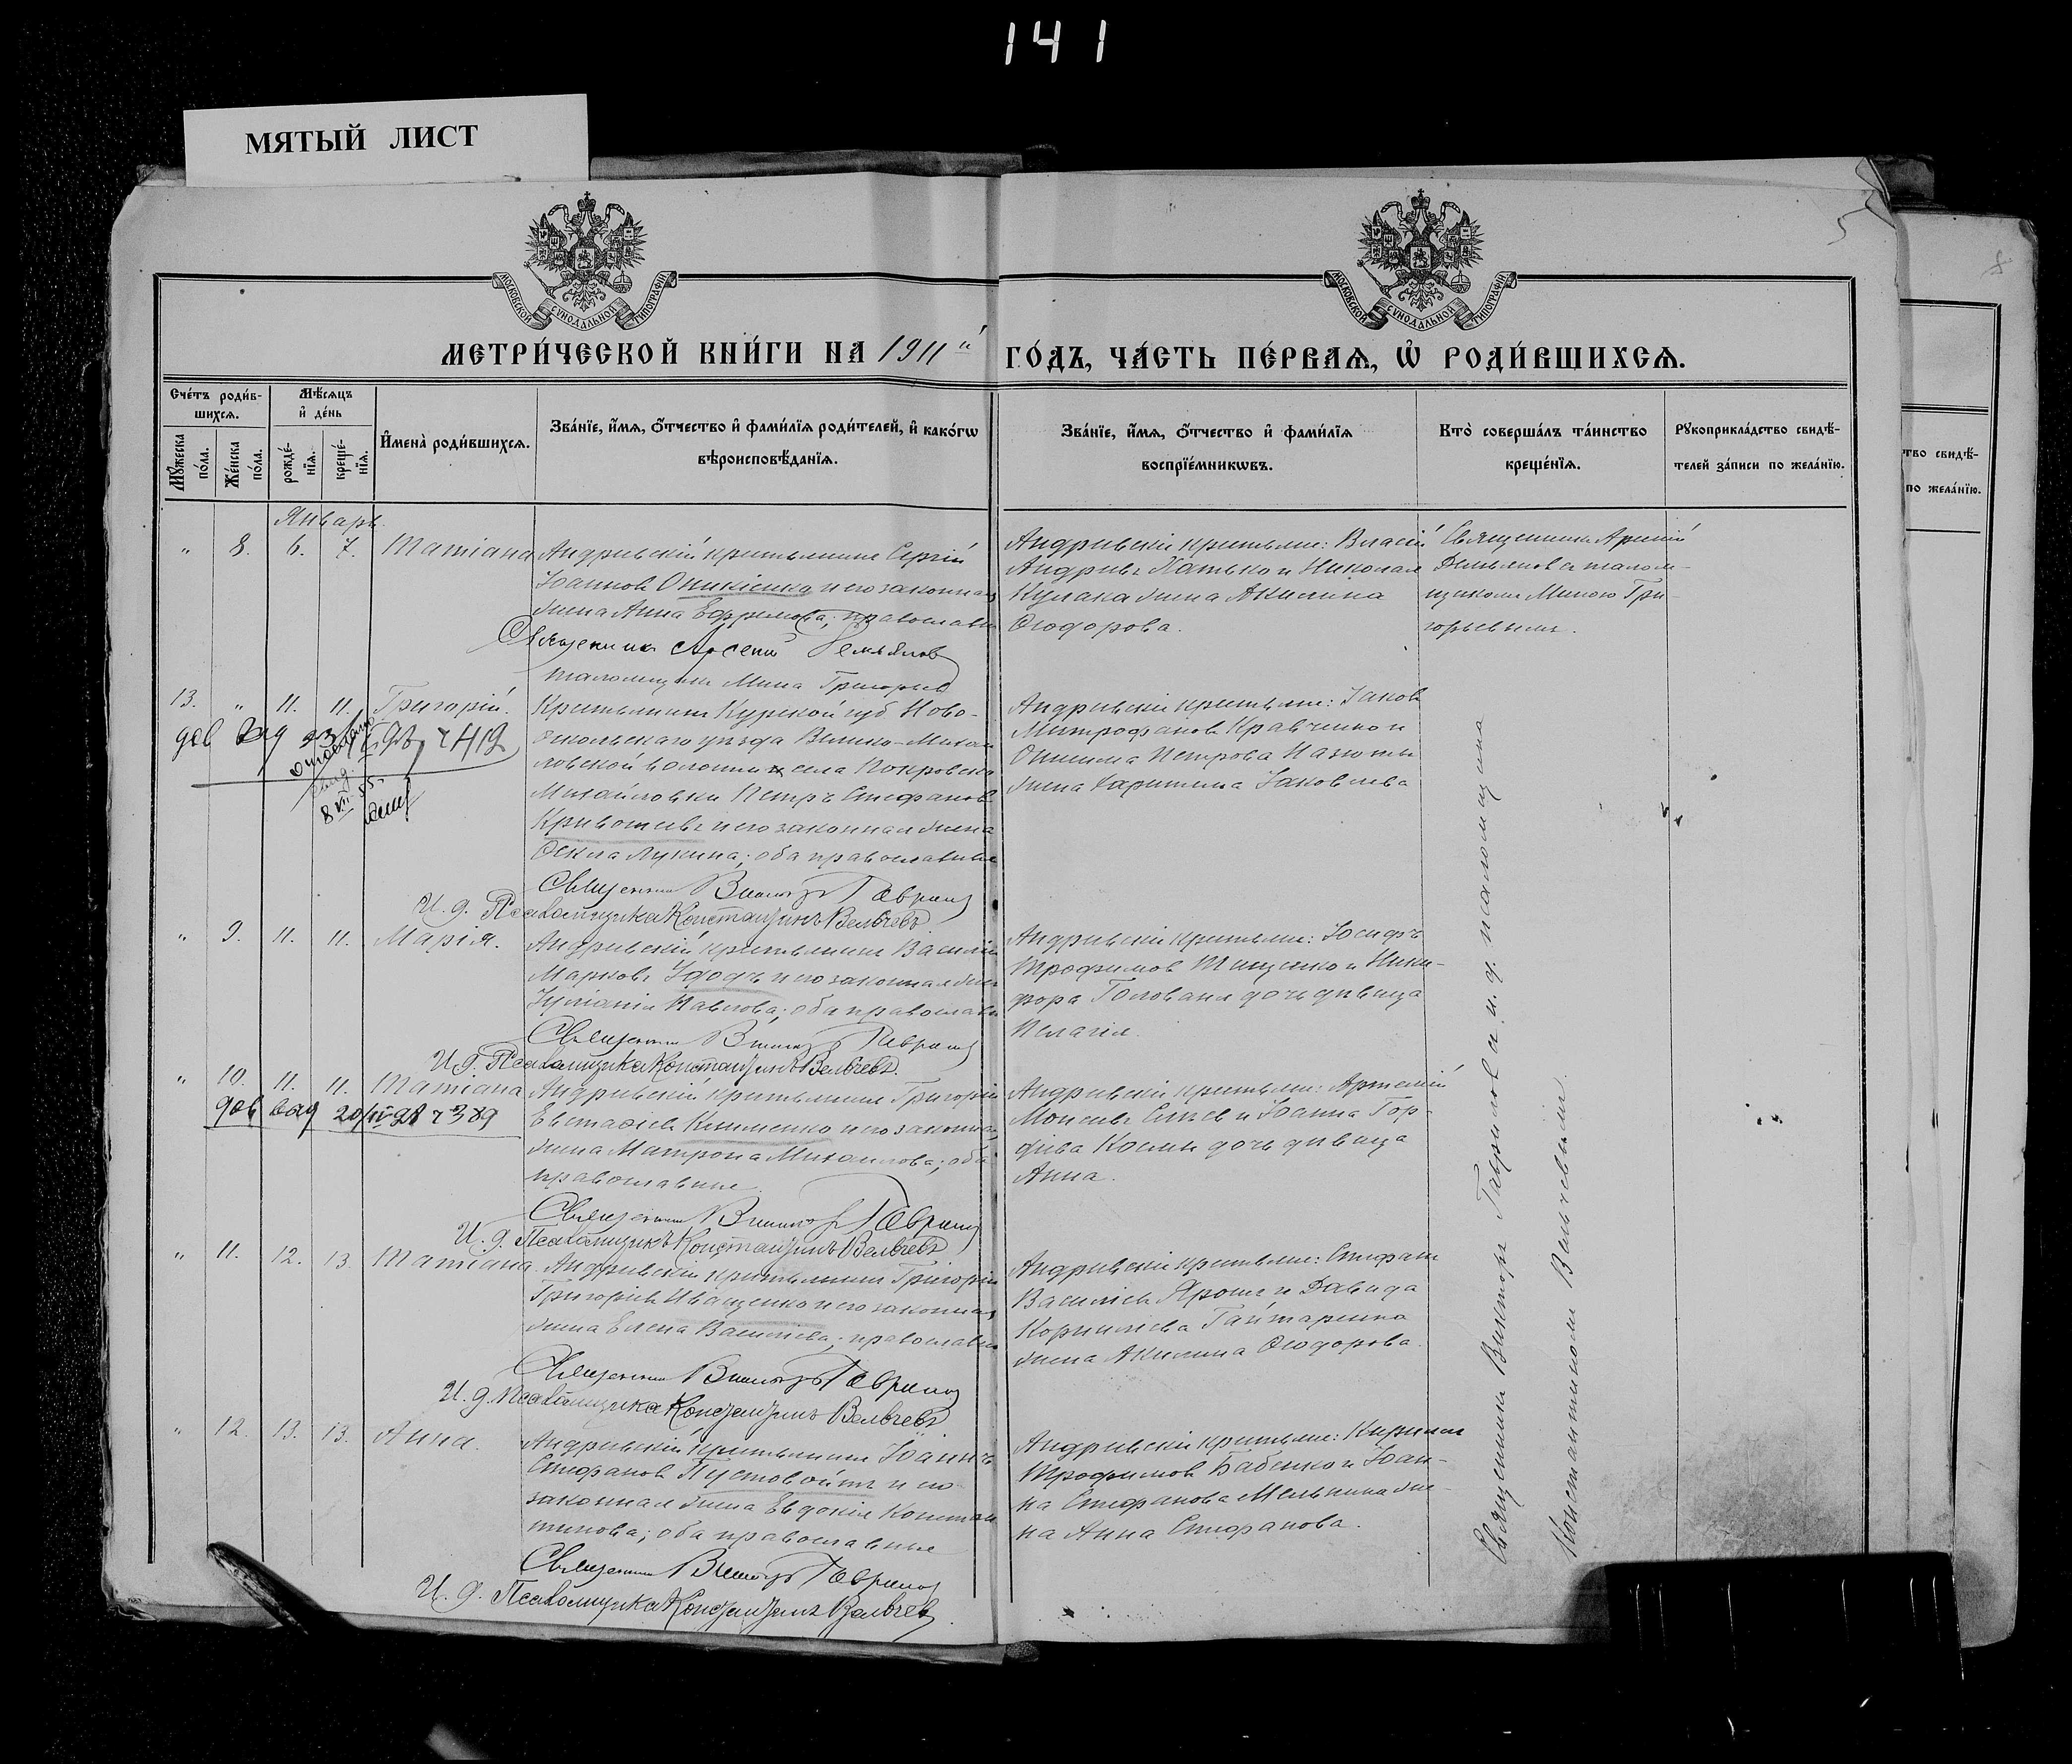 141
МЯТЫЙ ЛИСТ
МОСКОВСКОЙ СѴНОДАЛЬНОЙ ТИПОГРАФІИ
МОСКОВСКОЙ СѴНОДАЛЬНОЙ ТИПОГРАФІИ
МЕТРИ́ЧЕСКОЙ КНИ́ГИ НА 1911й ГО́ДЪ, ЧА́СТЬ ПЕ́РВАѦ, Ѡ҆ РОДИ́ВШИХСѦ.
Сче́тъ роди́в-
шихсѧ.
Мꙋ́жеска по́ла.
Же́нска по́ла.
Мѣ́сѧцъ
и҆ де́нь
рожде́-
нїѧ.
креще́-
нїѧ.
И҆мена̀ роди́вшихсѧ.
Зва́нїе, и҆́мѧ, ѻ҆́тчество и҆ фами́лїѧ роди́телей, и҆ како́гѡ
вѣроисповѣ́данїѧ.
Зва́нїе, и҆́мѧ, ѻ҆́тчество и҆ фами́лїѧ
воспрїе́мникѡвъ.
Кто̀ соверша́лъ та́инство
креще́нїѧ.
Рꙋкоприкла́дство свидѣ́-
телей за́писи по жела́нїю.
тво свидѣ́-
по жела́нїю.
Январь.
" 8. 6. 7. Татіана
Андреевскій крестьянинъ Сергій
Іоанновъ Оникіенко и его законная
жена Анна Ефремова; православн
Священникъ Арсеній Демьянов
псаломщикъ Мина Григорьев
Андреевскіе крестьяне: Власій
Андреевъ Хатько и Николая
Кулака жена Акилина
Ѳеодорова.
Священникъ Арсеній
Демьяновъ съ псалом-
щикомъ Миною Гри-
горьевымъ.
13. " 11. 11. Григорій.
Крестьянинъ Курской губ Ново-
оскольскаго уѣзда Велико-Михай
ловской волости села Покровско
Михайловки Петръ Стефановъ
Кривошеевъ и его законная жена
Ѳекла Лукина; оба православные
Священникъ Викторъ Гаврилов
И. д. Псаломщика Константинъ Вельчевъ.
Андреевскіе крестьяне: Іаковъ
Митрофановъ Кравченко и
Онисима Петрова Назюты
жена Харитина Іаковлева
" 9. 11. 11. Марія.
Андреевскій крестьянинъ Василій
Марковъ Удодъ и его законная жен
Іуліанія Павлова; оба православн
Священникъ Викторъ Гаврилов
И. д. Псаломщика Константинъ Вельчевъ.
Андреевскіе крестьяне: Іосифъ
Трофимовъ Тищенко и Ники-
фора Голованя дочь дѣвица
Пелагія.
" 10. 11. 11. Татіана
Андреевскій крестьянинъ Григорій
Евстафіевъ Клименко и его законная
жена Матрона Михаилова; оба
православные
Священникъ Викторъ Гаврилов
И. д. Псаломщикъ Константинъ Вельчевъ
Андреевскіе крестьяне: Артемій
Моисеевъ Сычевъ и Іоанна Гор-
дѣева Косми дочь дѣвица
Анна.
" 11. 12. 13. Татіана.
Андреевскій крестьянинъ Григорій
Григорьевъ Иващенко и его законная
жена Елена Василіева; православн
Священникъ Викторъ Гаврилов
И. д. псаломщика Константинъ Вельчевъ
Андреевскіе крестьяне: Стефанъ
Василіевъ Ярошъ и Давида
Корниліева Гайтаренко
жена Акилина Ѳеодорова.
" 12. 13. 13. Анна.
Андреевскій крестьянинъ Іоаннъ
Стефановъ Пустовойтъ и его
законная жена Евдокія Констан
тинова; оба православные
Священникъ Викторъ Гаврилов
И. д. Псаломщика Константинъ Вельчев
Андреевскіе крестьяне: Кириллъ
Трофимовъ Бабенко и Іоан-
на Стефанова Мельника же-
на Анна Стефанова.
Священникъ Викторъ Гавриловъ и. д. псаломщика
Константиномъ Вельчевымъ.